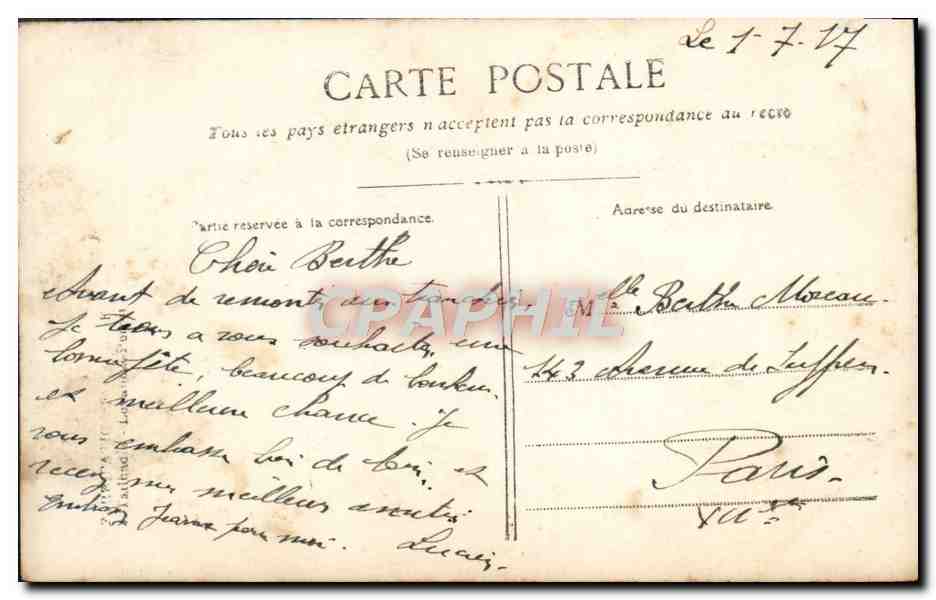 Le 1-7-17
CARTE POSTALE
Tous les pays etrangers n'acceptent pas la correspondance au recto
(Se renseigner a la poste)
Partie reservée à la correspondance.
Adresse du destinataire.
Chère Berthe
Avant de remonter aux tranchées.
Je tiens a vous souhaiter une
bonne fête, beaucoup de bonheur
et meilleure chance. Je
vous embrasse bien de loin, et
recevez mes meilleurs
embrasse Jeanne pour moi. Lucien.
Melle Berthe Moreau.
143 Avenue de Suffren.
Paris.
CPARHIL